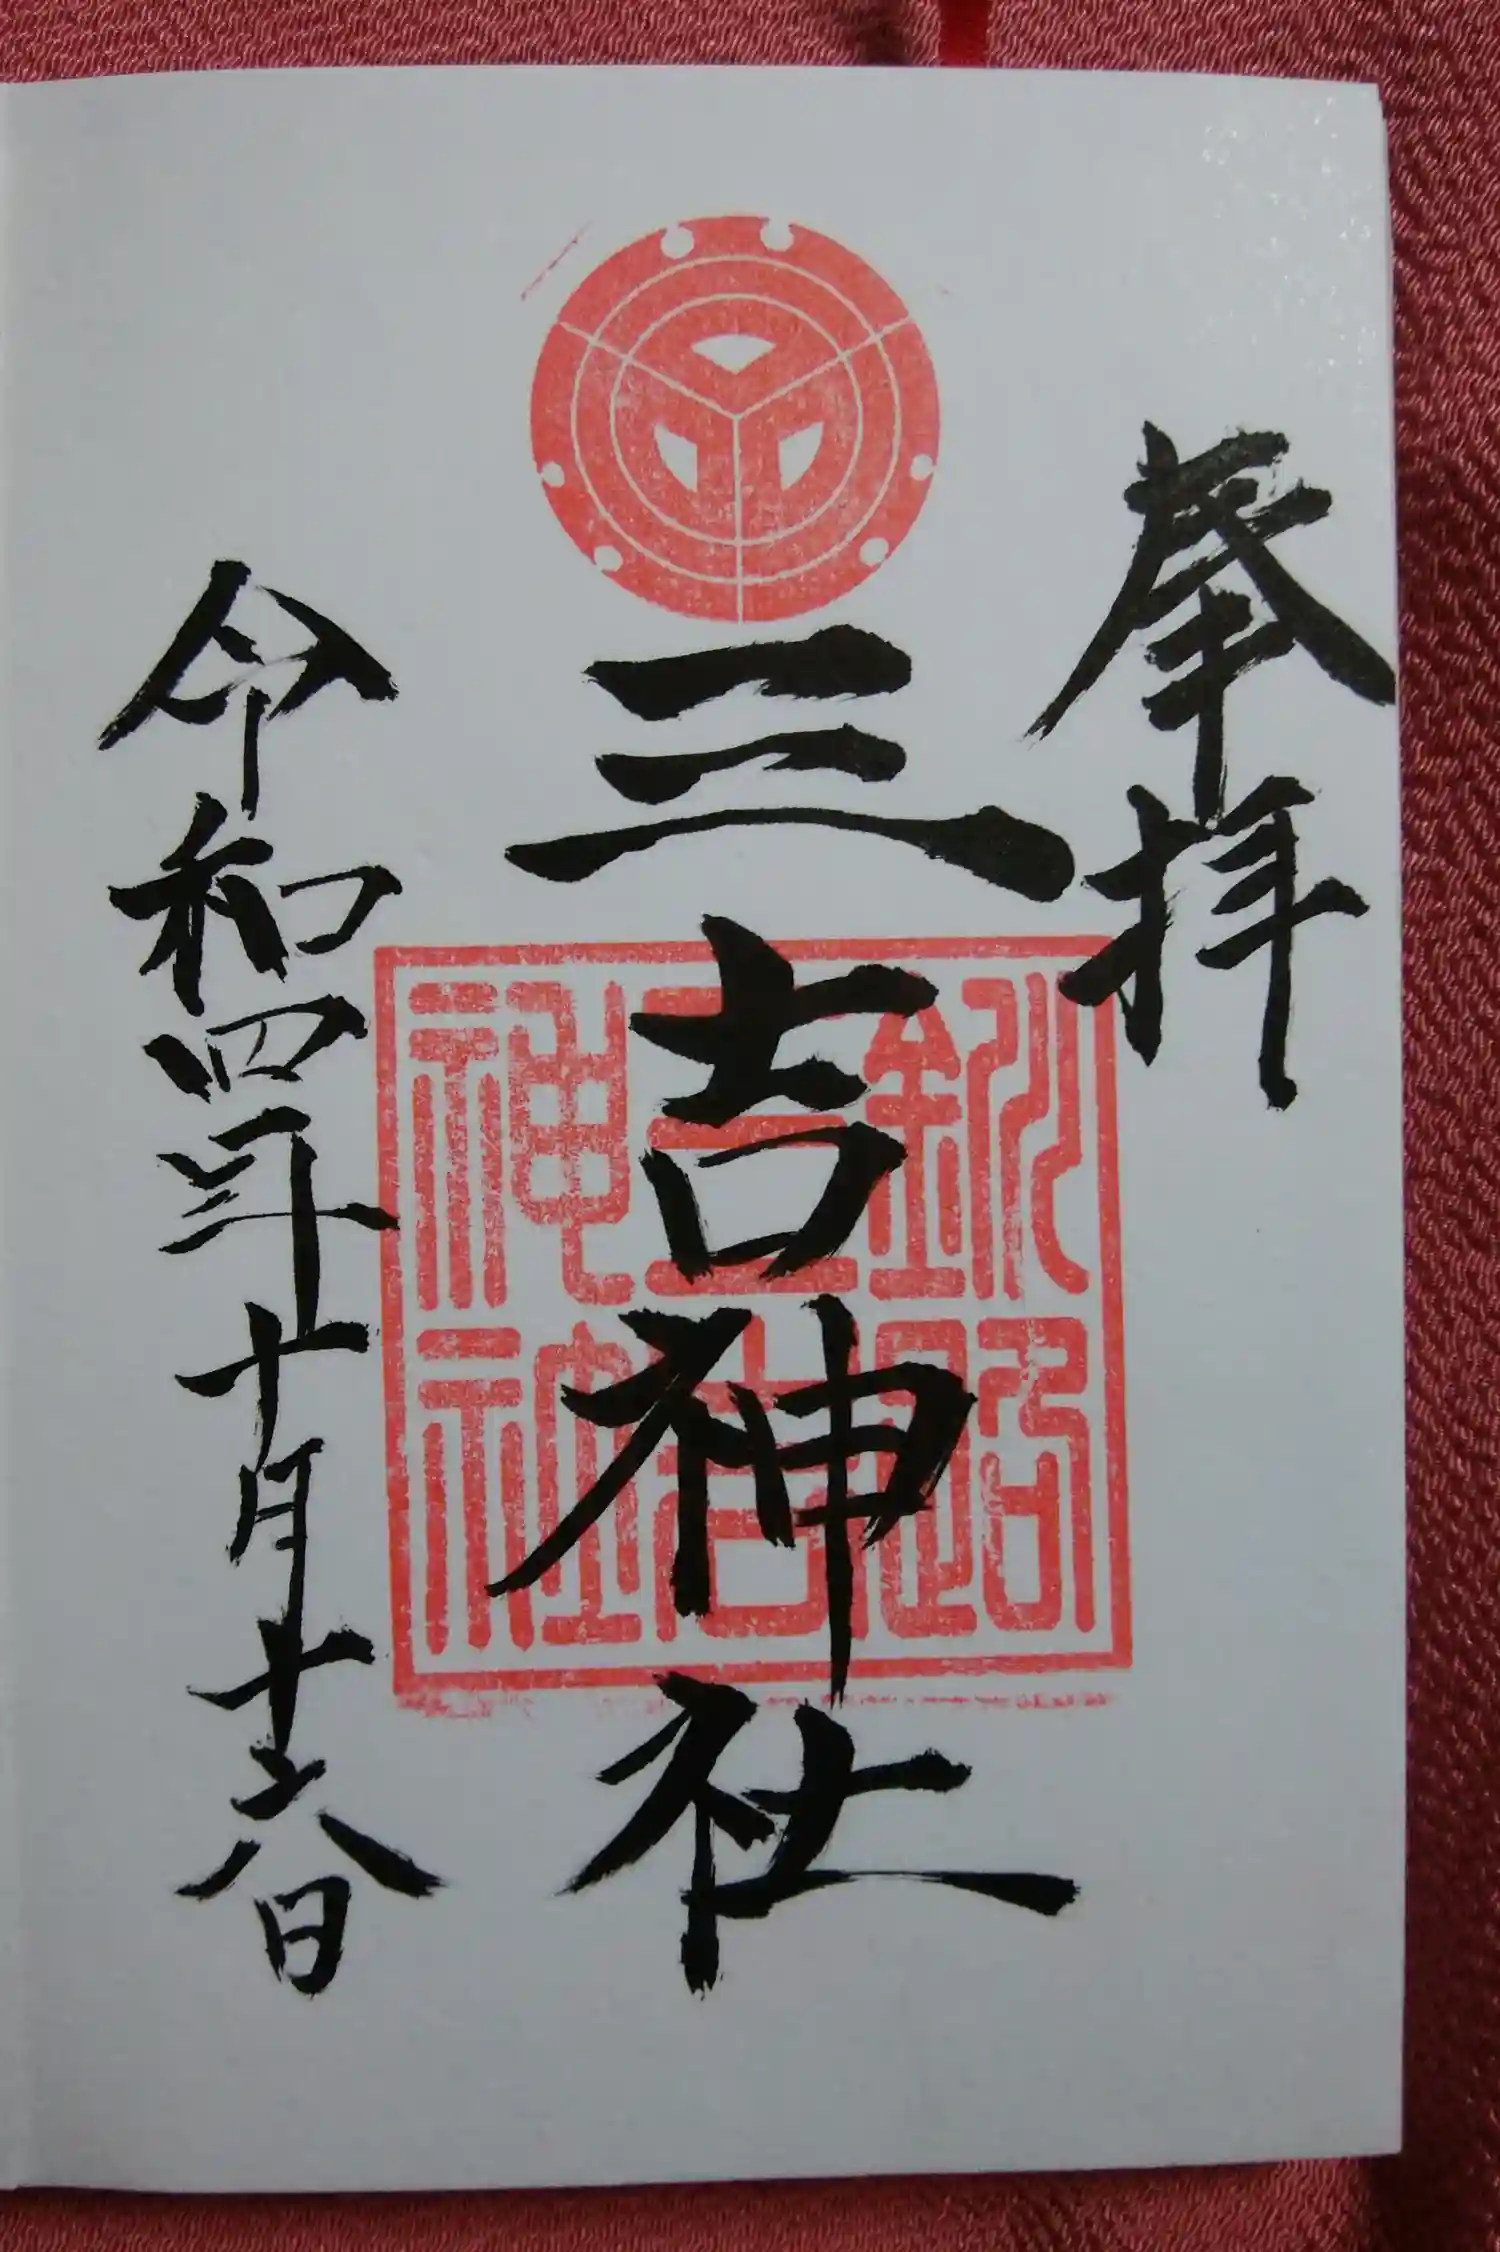 奉拝
三吉神社
令和四年十月十六日
釧路
三吉
神社